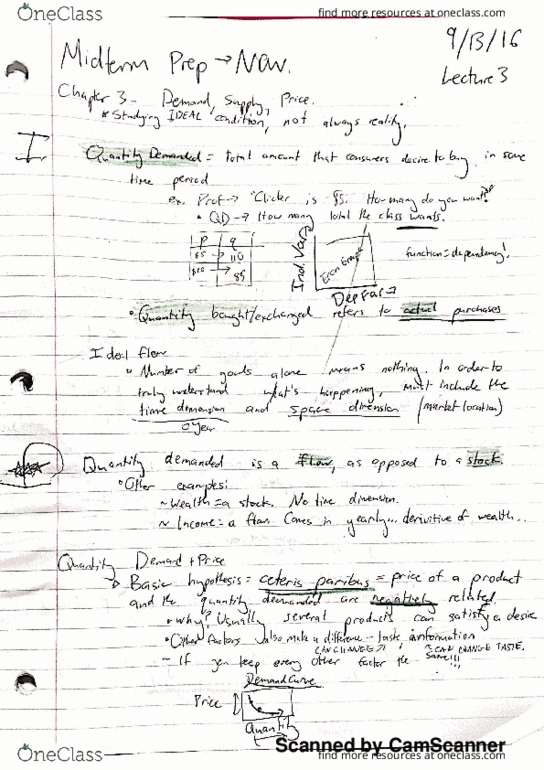 OneClass
find more resources at oneclass.com
9/13/16
Midterm Prep → Nov.
Lecture 3
Chapter 3 - Demand, Supply, Price.
* Studying IDEAL condition, not always reality.
I
Quantity Demanded = total amount that consumers desire to buy in some
time period
ex. Prof → "Clicker is $5. How many do you want?"
• QD → How many total the class wants.
P q
$5 → 110
$10 → 85
Ind. Var
Econ Graph
Dep Var →
function = dependency!
• Quantity bought/exchanged refers to actual purchases
Ideal flow
• Number of goods alone means nothing. In order to
truly understand what's happening, must include the
time demension and space dimension (market location)
Quantity demanded is a flow, as opposed to a stock.
• Other examples:
~ Wealth = a stock. No time dimension.
~ Income = a flow. Comes in yearly... derivitive of wealth..
Quantity Demand + Price
→ Basic hypothesis = ceteris paribus = price of a product
and the quantity demanded are negatively related.
• Why? Usually several products can satisfy a desire
• Other factors also make a difference - taste information
CAN CHANGE
CAN CHANGE TASTE.
- If you keep every other factor the same!!!
Demand Curve
Price
Quantity
Scanned by CamScanner
OneClass
find more resources at oneclass.com